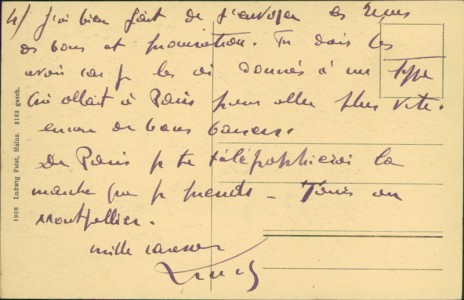 4/ j'ai bien fait de t'envoyer les
et procuration. Tu dois les
avoir car je les ai donnés à un type
qui allait à Paris pour aller plus vite.
encore de bons baisers
De Paris je te télégraphierai la
marche que je prends - Tunis ou
Montpellier.
mille caresses
1908 Ludwig Feist, Mainz. 8163 gesch.